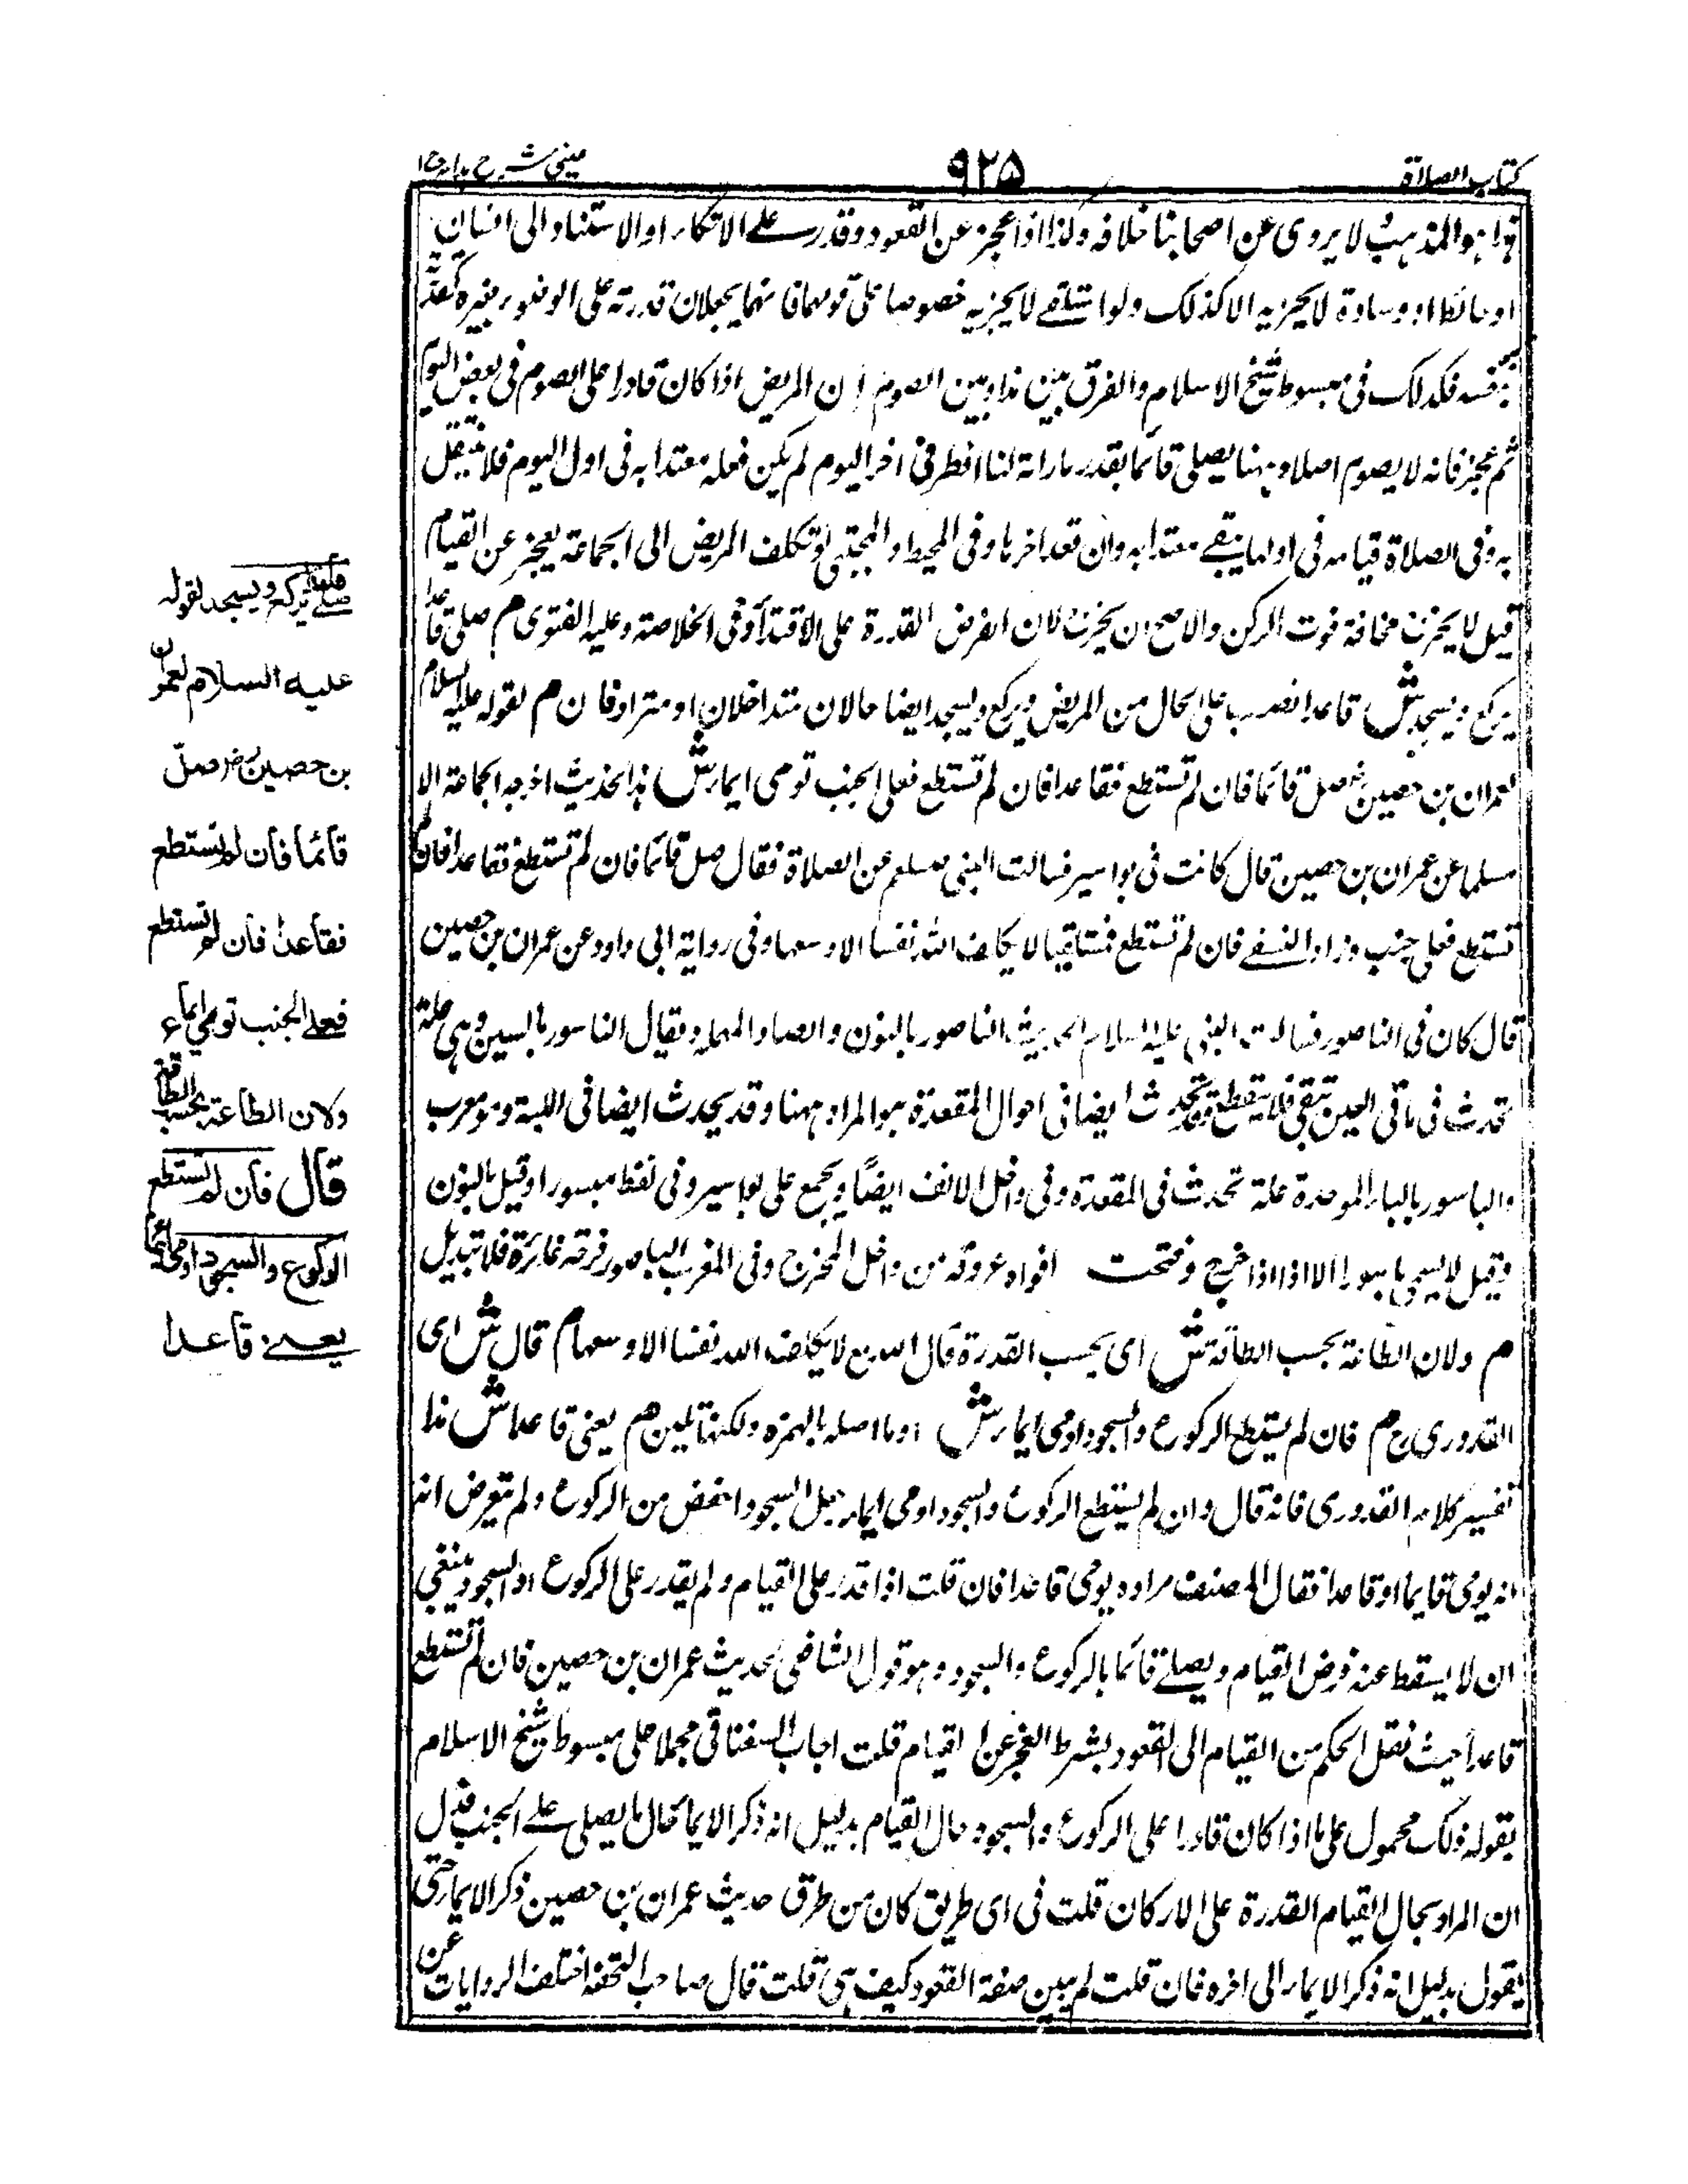 كتاب الصلاة
٩٢٥
عينى شرح هدايه ج ١
هذا هو المذهب لا يروى عن اصحابنا خلافه وكذا اذا عجز عن القعود وقدر على الاتكاء او الاستناد الى انسان
او حائط او وسادة لا يجزيه الا كذلك ولو استلقى لا يجزيه خصوصا على قولهما فانهما يجعلان قدرته على الوضوء بغيره كقدرته
بنفسه فكذلك فى مبسوط شيخ الاسلام والفرق بين هذا وبين الصوم ان المريض اذا كان قادرا على الصوم فى بعض اليوم
ثم عجز فانه لا يصوم اصلا وههنا يصلى قائما بقدر ما لانه لنا افطر فى اخر اليوم لم يكن فعله معتدا به فى اول اليوم فلا يشتغل
به وفى الصلاة قيامه فى اولها يبقى معتدا به وان قعد اخرها وفى المحيط والمجتبى لو تكلف المريض الى الجماعة يعجز عن القيام
قيل لا يخرج مخافة فوت الركن والاصح ان يخرج لان الفرض القدرة على الاقتداء وفى الخلاصة وعليه الفتوى م صلى قاعدا
يركع ويسجد ش قاعدا نصب على الحال من المريض ويركع ويسجد ايضا حالان متداخلان او مترادفان م لقوله عليه السلام
لعمران بن حصين رض صل قائما فان لم تستطع فقاعدا فان لم تستطع فعلى الجنب تومى ايماء ش هذا الحديث اخرجه الجماعة الا
مسلما عن عمران بن حصين قال كانت فى بواسير فسالت النبى صلعم عن الصلاة فقال صل قائما فان لم تستطع فقاعدا فان لم
تستطع فعلى جنب وزاد النسفى فان لم تستطع فمستلقيا لا يكلف الله نفسا الا وسعها وفى رواية ابى داود عن عمران بن حصين
قال كان فى الناصور فسالت النبى عليه السلام الحديث الناصور بالنون والصاد المهملة ويقال الناسور بالسين وهى علة
تحدث فى ماقى العين تبقى فلا ينقطع وتحدث ايضا فى احوال المقعدة هو المراد ههنا وقد يحدث ايضا فى اللبة وهو معرب
والباسور بالباء الموحدة علة تحدث فى المقعدة وفى داخل الانف ايضا ويجمع على بواسير وفى لفظ مبسورا وقيل بالنون
وقيل لا يسمى باسورا الا اذا اذا خرج وفتحت افواه عروقه من داخل المخرج وفى المغرب الباصور قرحة غائرة فلا تبديل
م ولان الطاعة بحسب الطاقة ش اى بحسب القدرة قال الله تع لا يكلف الله نفسا الا وسعها م قال ش اى
القدورى رح م فان لم يستطع الركوع والسجود اومى ايماء ش اوما اصله بالهمزة ولكنها تلين م يعنى قاعدا ش هذا
تفسير كلام القدورى فانه قال وان لم يستطع الركوع والسجود اومى ايماء جعل السجود اخفض من الركوع ولم يتعرض انه
انه يومى قايما او قاعدا فقال المصنف مراده يومى قاعدا فان قلت اذا قدر على القيام ولم يقدر على الركوع او السجود ينبغى
ان لا يسقط عنه فرض القيام ويصلى قائما بالركوع والسجود وهو قول الشافعى لحديث عمران بن حصين فان لم تستطع
قاعدا حيث نقل الحكم من القيام الى القعود بشرط العجز عن القيام قلت اجاب السغناقى مجملا على مبسوط شيخ الاسلام
بقوله ذلك محمول على ما اذا كان قادرا على الركوع والسجود حال القيام بدليل انه ذكر الايماء حال ما يصلى على الجنب فدل
ان المراد بحال القيام القدرة على الاركان قلت فى اى طريق كان من طرق حديث عمران بن حصين ذكر الايماء حتى
يقول بدليل انه ذكر الايماء الى اخره فان قلت لم يبين صفة القعود كيف هى قلت قال صاحب التحفة اختلف الروايات عن
صلى قاعدا يركع ويسجد لقوله
عليه السلام لعمران
بن حصين رض صل
قائما فان لم تستطع
فقاعدا فان لم تستطع
فعلى الجنب تومى ايماء
ولان الطاعة بحسب الطاقة
قال فان لم تستطع
الركوع والسجود اومى ايماء
يعنى قاعدا